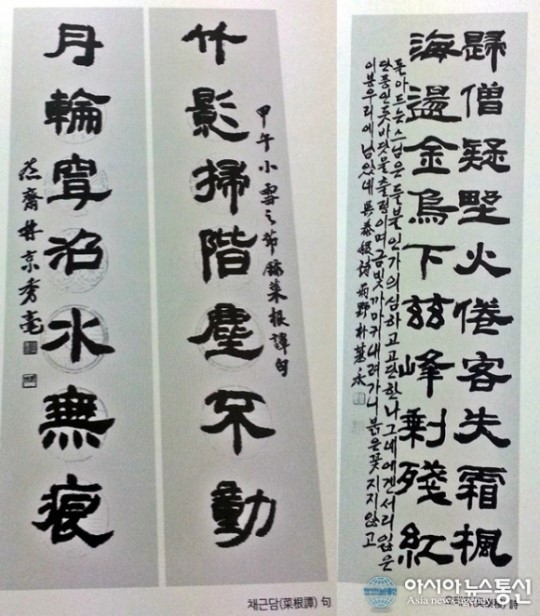 竹影掃階塵不動
甲午小雪之節錄菜根譚句
月輪穿沼水無痕
歸僧疑野火倦客失霜楓
海盪金烏下玆峰剩殘紅
돌아드는 스님은 들불인가 의심하고 고단한 나그네에겐 서리 입은
단풍인듯 바닷물 출렁이며 금빛까마귀 내려가니 붉은꽃 지지않고
이봉우리에 남았네
채근담(菜根譚) 句
詩
아시아뉴스통신
Asia news agency